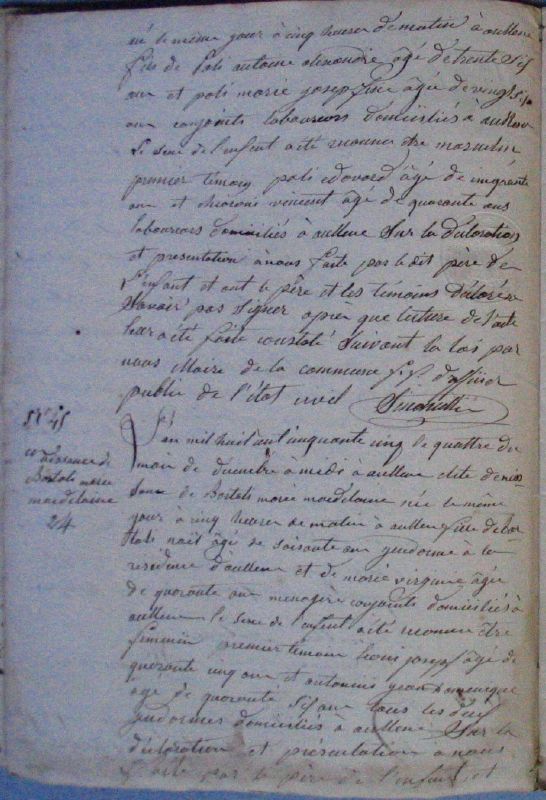 né le même jour à cinq heures de matin à aullene
fils de Poli antoine alexandre âgé de trente six
ans et poli marie josephine âgée de vingt six
ans conjoints laboureurs domiciliés à aullene
Le sexe de l'enfant a été reconnu être masculin
premier témoin poli edovard âgé de
ans et vincent âgé de quarante ans
laboureurs domiciliés à aullene Sur la déclaration
et presentation a nous faite par le dit père de
l'enfant et ont le père et les témoins déclaré ne
Savoir pas Signer après que lecture de l'acte
leur a été faite constaté Suivant la loi par
nous Maire de la commune f.f. d'officier
public de l'état civil
N° 45
naissance de
Bortoli marie
madelaine
24
L'an mil huit cent cinquante cinq le quattre du
mois de decembre à midi a aullene acte de nais
sance de Bortoli marie madelaine née le même
jour à cinq heures de matin à aullene fille de Bor
toli noël âgé de soixante ans gendarme à la
residence d'aullene et de marie virginie âgée
de quarante ans menagère conjoints domiciliés à
aullene le sexe de l'enfant a été reconnu être
féminin Premier témoin joseph âgé de
quarante cinq ans et jean domenique
âgé de quarante six ans tous les deux
gendarmes domiciliés à aullene Sur la
déclaration et presentation a nous
faite par le père de l'enfant et